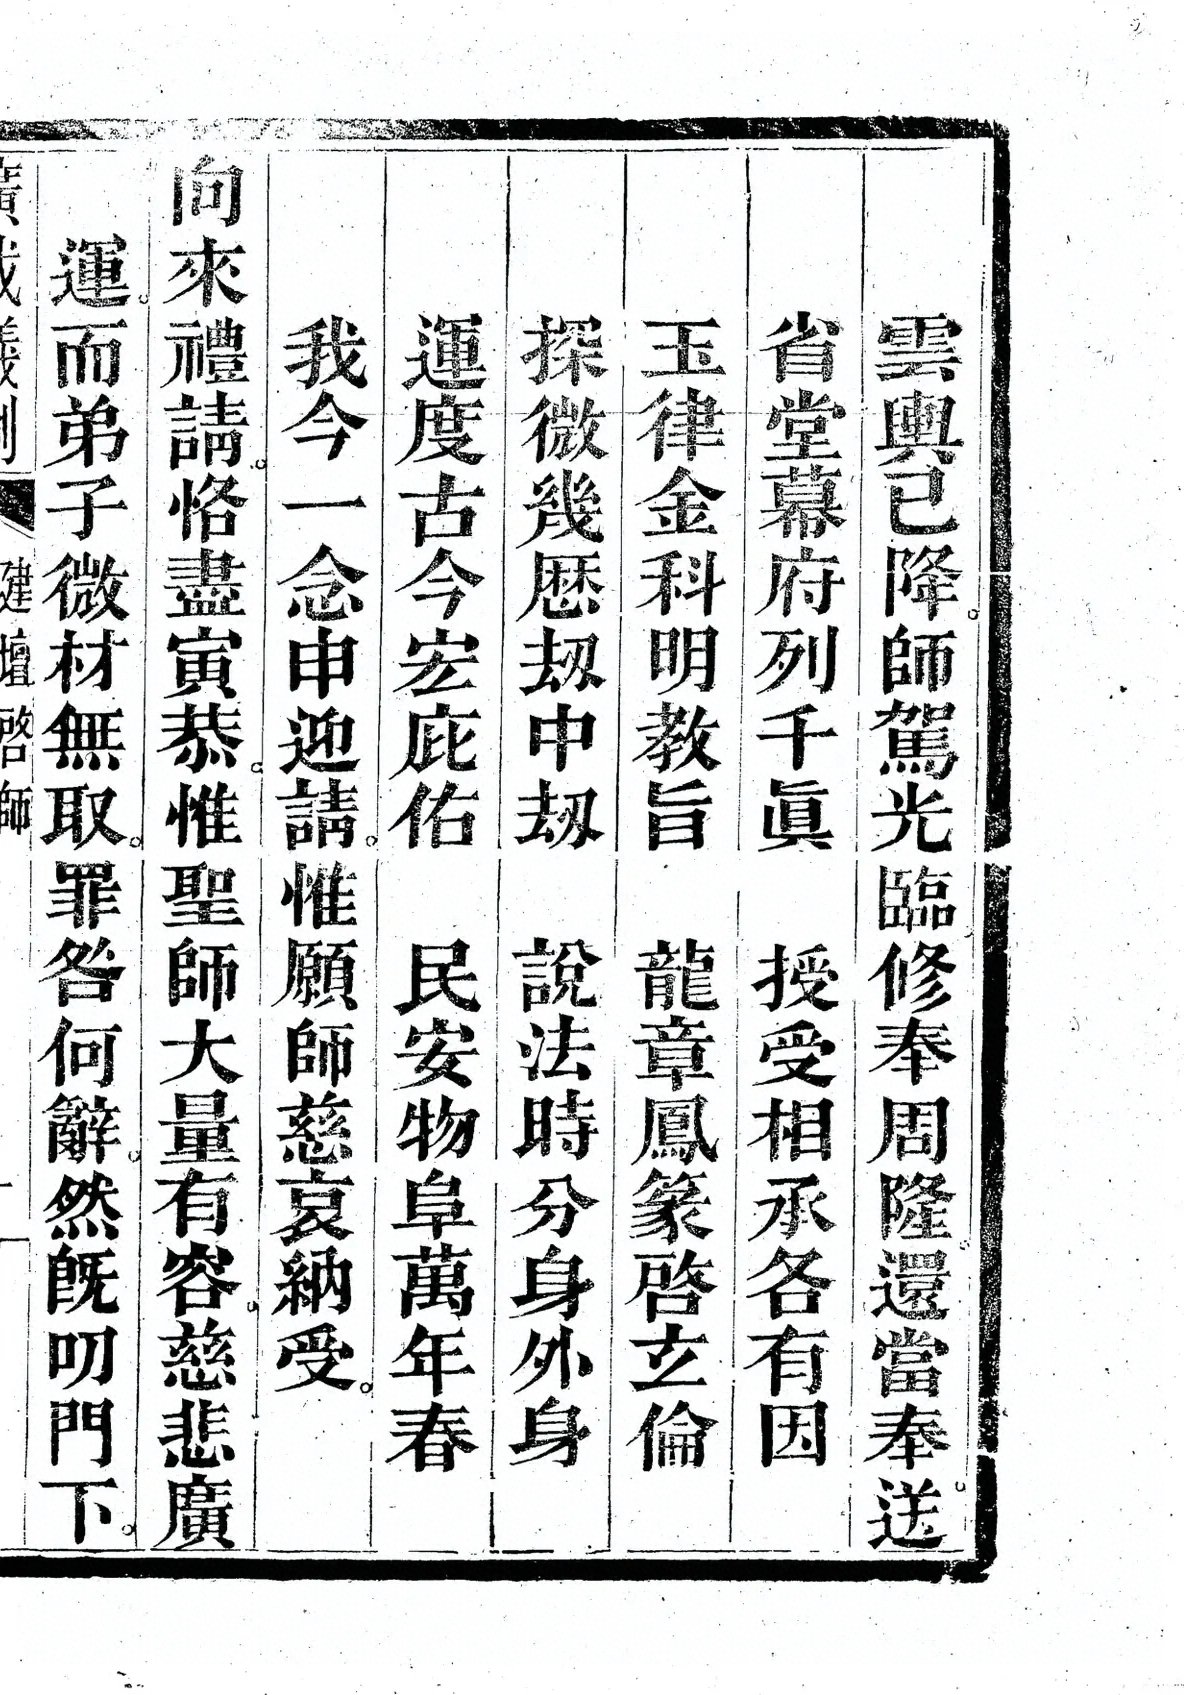 雲輿已降。師駕光臨修奉周隆。還當奉送。
省堂幕府列千眞　授受相承各有因
玉律金科明教旨　龍章鳳篆啓立倫
探微幾歴刼中刼　說法時分身外身
運度古今宏庇佑　民安物阜萬年春
我今一念申迎請。惟願師慈哀納受。
向來禮請。恪盡寅恭。惟聖師大量有容。慈悲廣
運。而弟子微材無取。罪咎何辭。然旣叨門下。
廣成儀制
建壇啓師